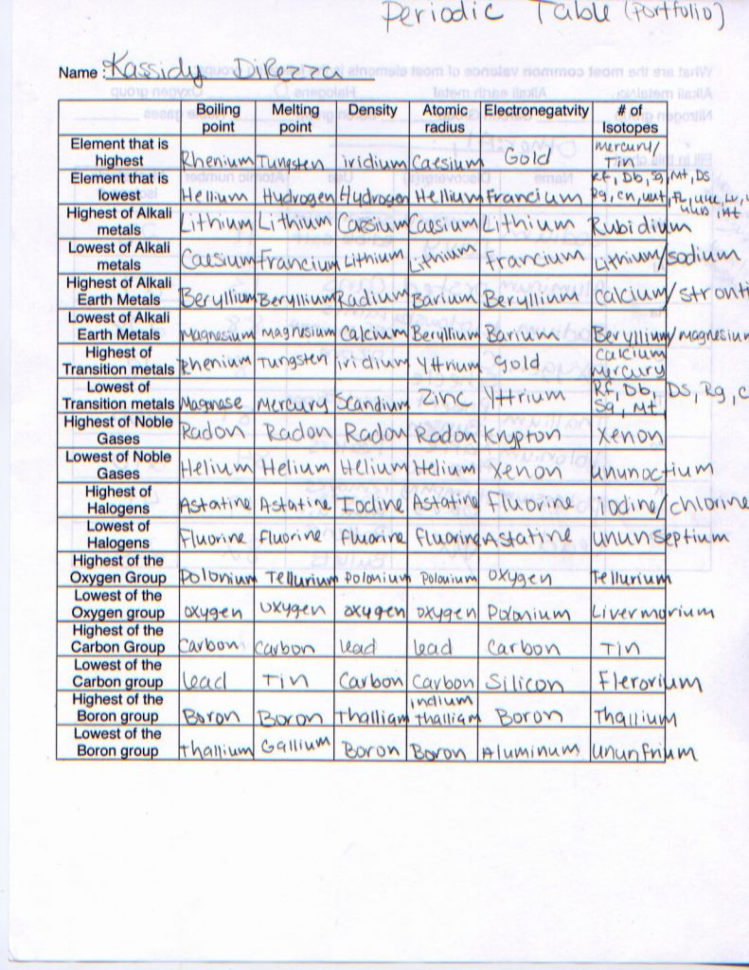 Periodic Table (Portfolio)
Name: Kassidy DiRezza
Boiling point Melting point Density Atomic radius Electronegatvity # of Isotopes
Element that is highest Rhenium Tungsten iridium Caesium Gold mercury/ Tin
Element that is lowest Hellium Hydrogen Hydrogen Hellium Francium Rf, Db, Sg, Mt, Ds Rg, cn,
Highest of Alkali metals Lithium Lithium Caesium Caesium Lithium Rubidium
Lowest of Alkali metals Caesium Francium Lithium Lithium Francium Lithium/sodium
Highest of Alkali Earth Metals Beryllium Beryllium Radium Barium Beryllium Calcium/ stronti
Lowest of Alkali Earth Metals Magnesium magnesium Calcium Beryllium Barium Beryllium/magnesium
Highest of Transition metals Rhenium Tungsten iridium Yttrium Gold calcium mercury
Lowest of Transition metals Magnase Mercury Scandium Zinc Yttrium Rf, Db, Ds, Rg, C Sg, Mt
Highest of Noble Gases Radon Radon Radon Radon Krypton Xenon
Lowest of Noble Gases Helium Helium Helium Helium Xenon ununoctium
Highest of Halogens Astatine Astatine Iodine Astatine Fluorine iodine/chlorine
Lowest of Halogens Fluorine fluorine fluorine fluorine Astatine ununseptium
Highest of the Oxygen Group Polonium Tellurium Polonium Polonium oxygen Tellurium
Lowest of the Oxygen group oxygen oxygen oxygen oxygen Polonium Livermorium
Highest of the Carbon Group Carbon Carbon lead lead Carbon Tin
Lowest of the Carbon group lead Tin Carbon Carbon Silicon Flerorium
Highest of the Boron group Boron Boron Thalliam indium thalliam Boron Thallium
Lowest of the Boron group thallium Gallium Boron Boron Aluminum Ununfrium